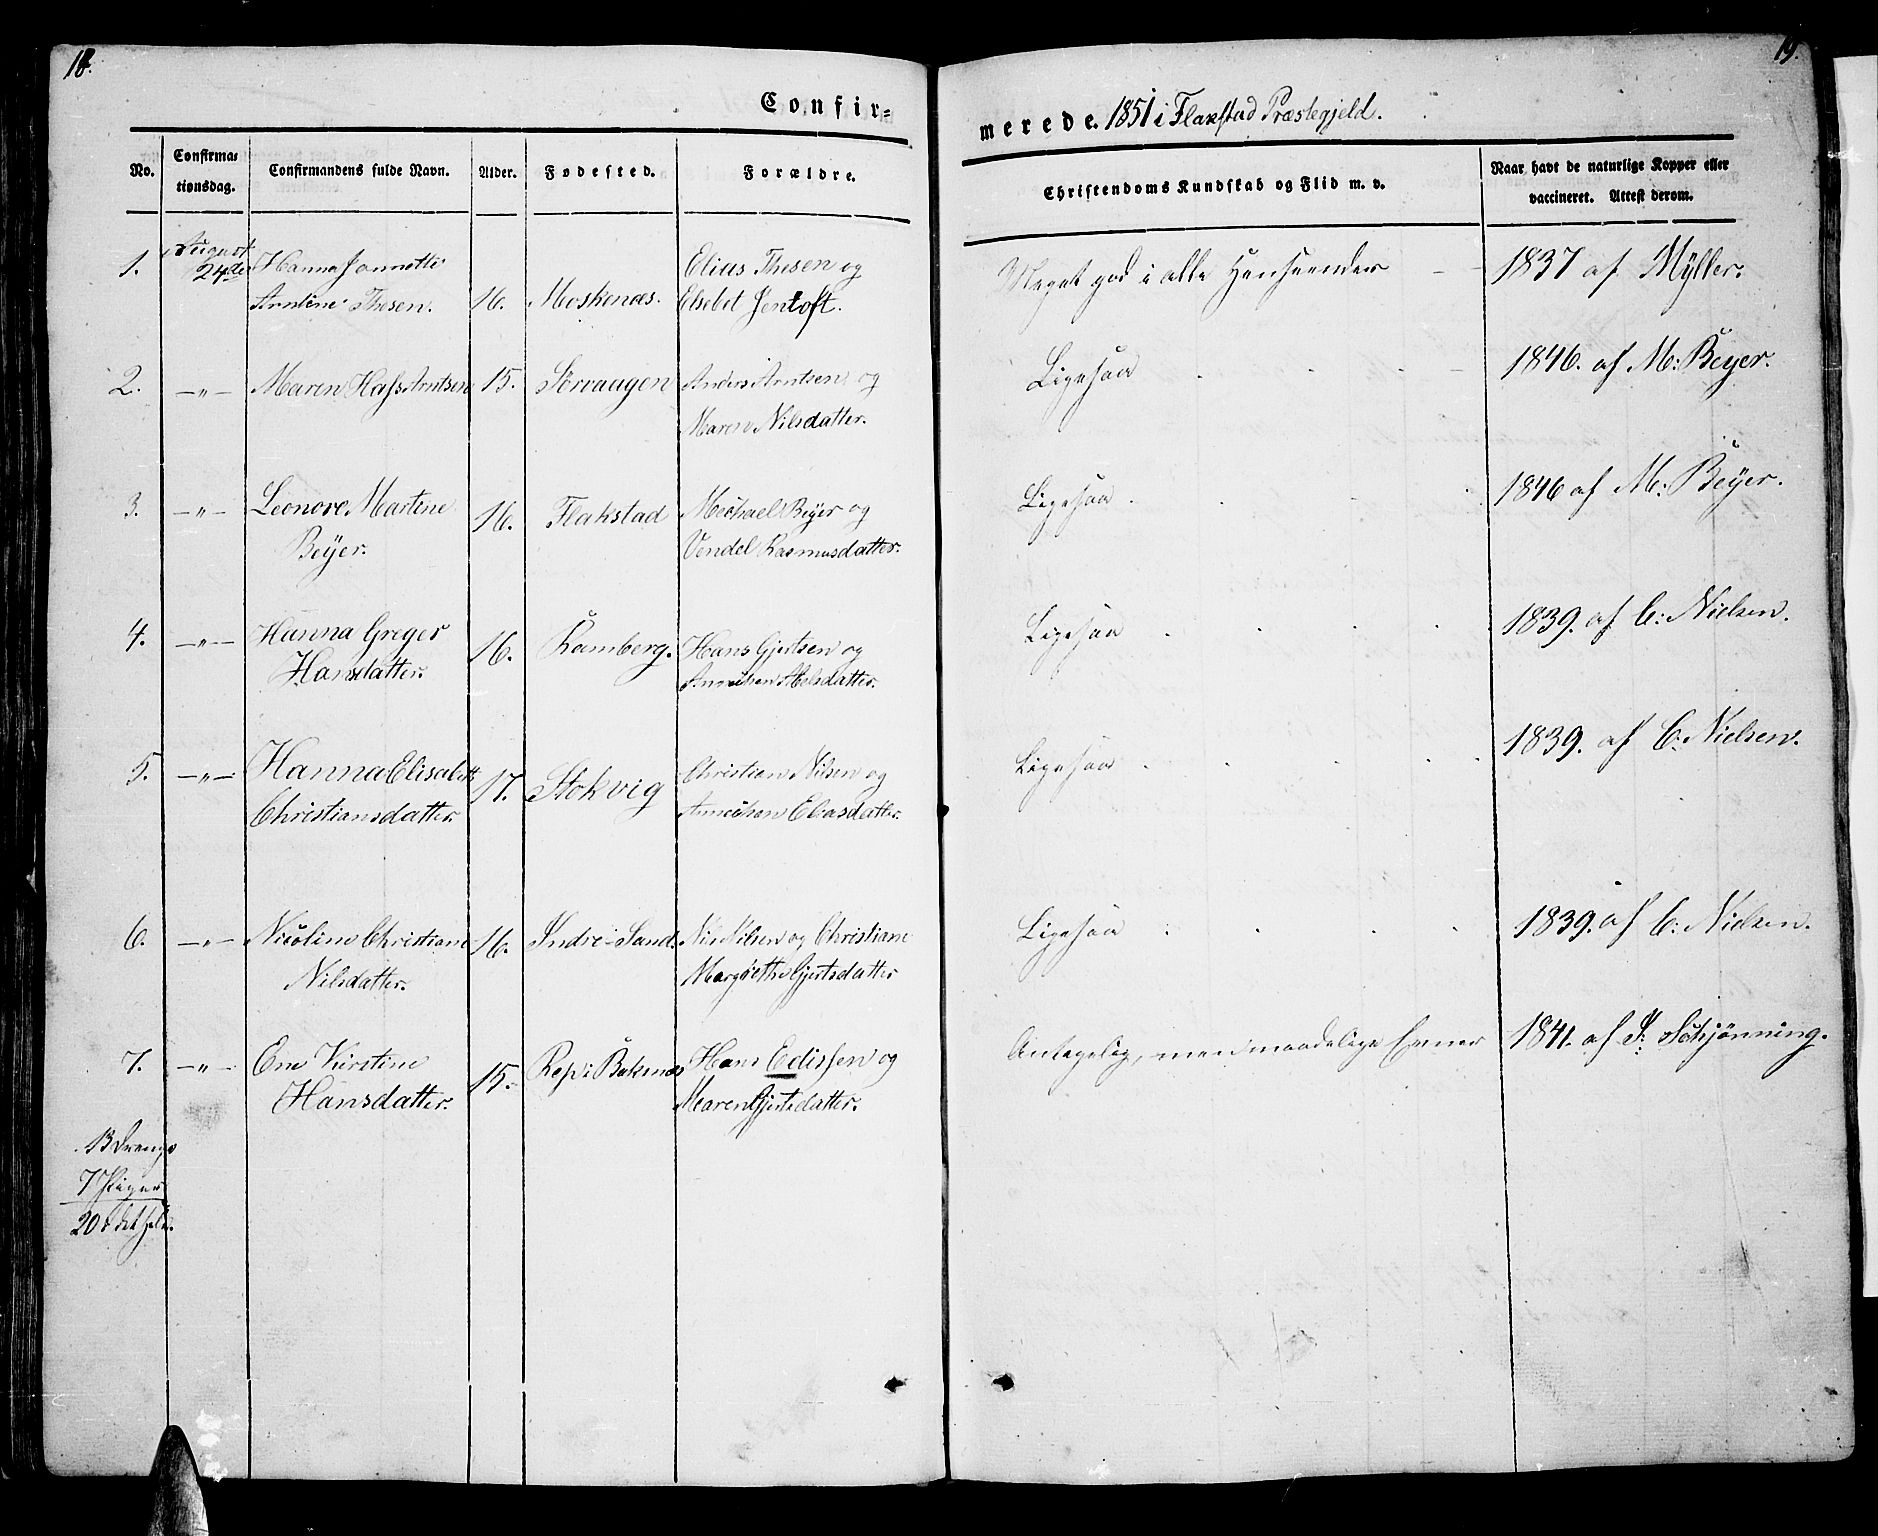 18.
19.
Confir-
merede. 1851 i Flakstad Præstegjeld.
No.
Confirma-
tionsdag.
Confirmandens fulde Navn.
Alder.
Fødested.
Forældre.
Christendoms Kundskab og Flid m. v.
Naar havt de naturlige Kopper eller
vaccineret. Attest derom.
1. August Hanna Jonnette Elius Thesen og Meget god i alle Henseender - - 1837 af Mÿller.
24de Arntine Thesen. 16. Moskenæs. Elsebet Jentoft.
2. -"- Maren Hass Arntsen 15. Sørvaagen Anders Arntsen og Ligesaa 1846. af M: Beyer.
Maren Nilsdatter.
3. -"- Leonore Martine 16. Flakstad Michael Beÿer og Ligesaa 1846 af M: Beÿer.
Beÿer. Vendel Rasmusdatter.
4. -"- Hanna Greger 16. Ramberg. Hans Gjertsen og Ligesaa 1839. af C: Nielsen.
Hansdatter.
5. -"- Hanna Elisabeth 17. Stokvig Christian Nilsen og Ligesaa 1839. af C: Nielsen.
Christiansdatter. Annichen Eliasdatter.
6. -"- Nicoline Christiane 16. Indre-Sand. Nils Nilsen og Christiane Ligesaa 1839. af C: Nielsen.
Nilsdatter. Margrethe Gjertsdatter
7. -"- Ane Kirstine 15. Rep i Buksnæs Hans Edissen og Antagelig, men maadelige Evner 1841. af J: Schjønning.
Hansdatter. Maren Gjertsdatter.
13 Drenge
7 Piger
20 i det hele.